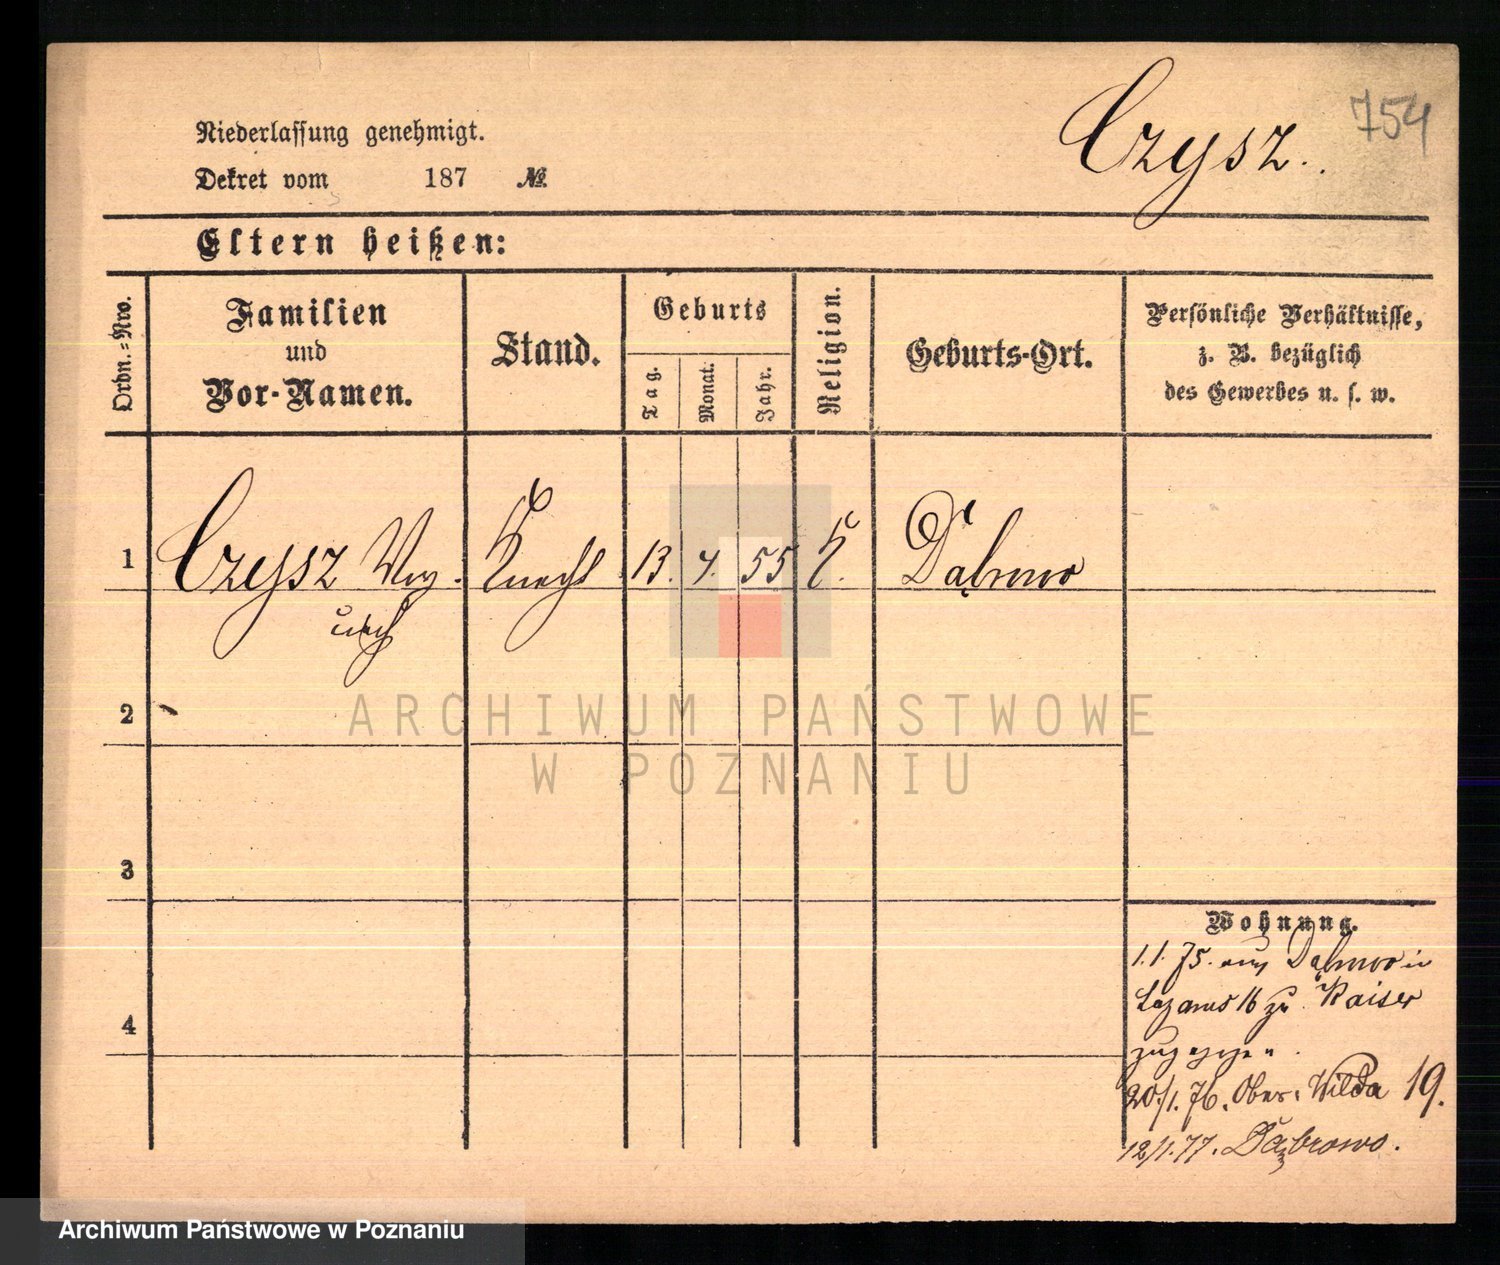 Czysz.
754
Niederlassung genehmigt.
Dekret vom 187 №
Eltern heißen:
Ordn.-Nro.
Familien
und
Vor-Namen.
Stand.
Geburts
Tag.
Monat.
Jahr.
Religion.
Geburts-Ort.
Persönliche Verhältnisse,
z. B. bezüglich
des Gewerbes u. s. w.
1 Czysz Woy- Knecht 13. 4. 55 K. Dąbrowo
ciech
2
3
4
Wohnung.
1.1.75. aus Dąbrowo in
Lazarus 16 zu Kaiser
zugezogen.
20/1.76. Ober-Wilda 19.
12/1.77. Dąbrowo.
ARCHIWUM PAŃSTWOWE
W POZNANIU
Archiwum Państwowe w Poznaniu